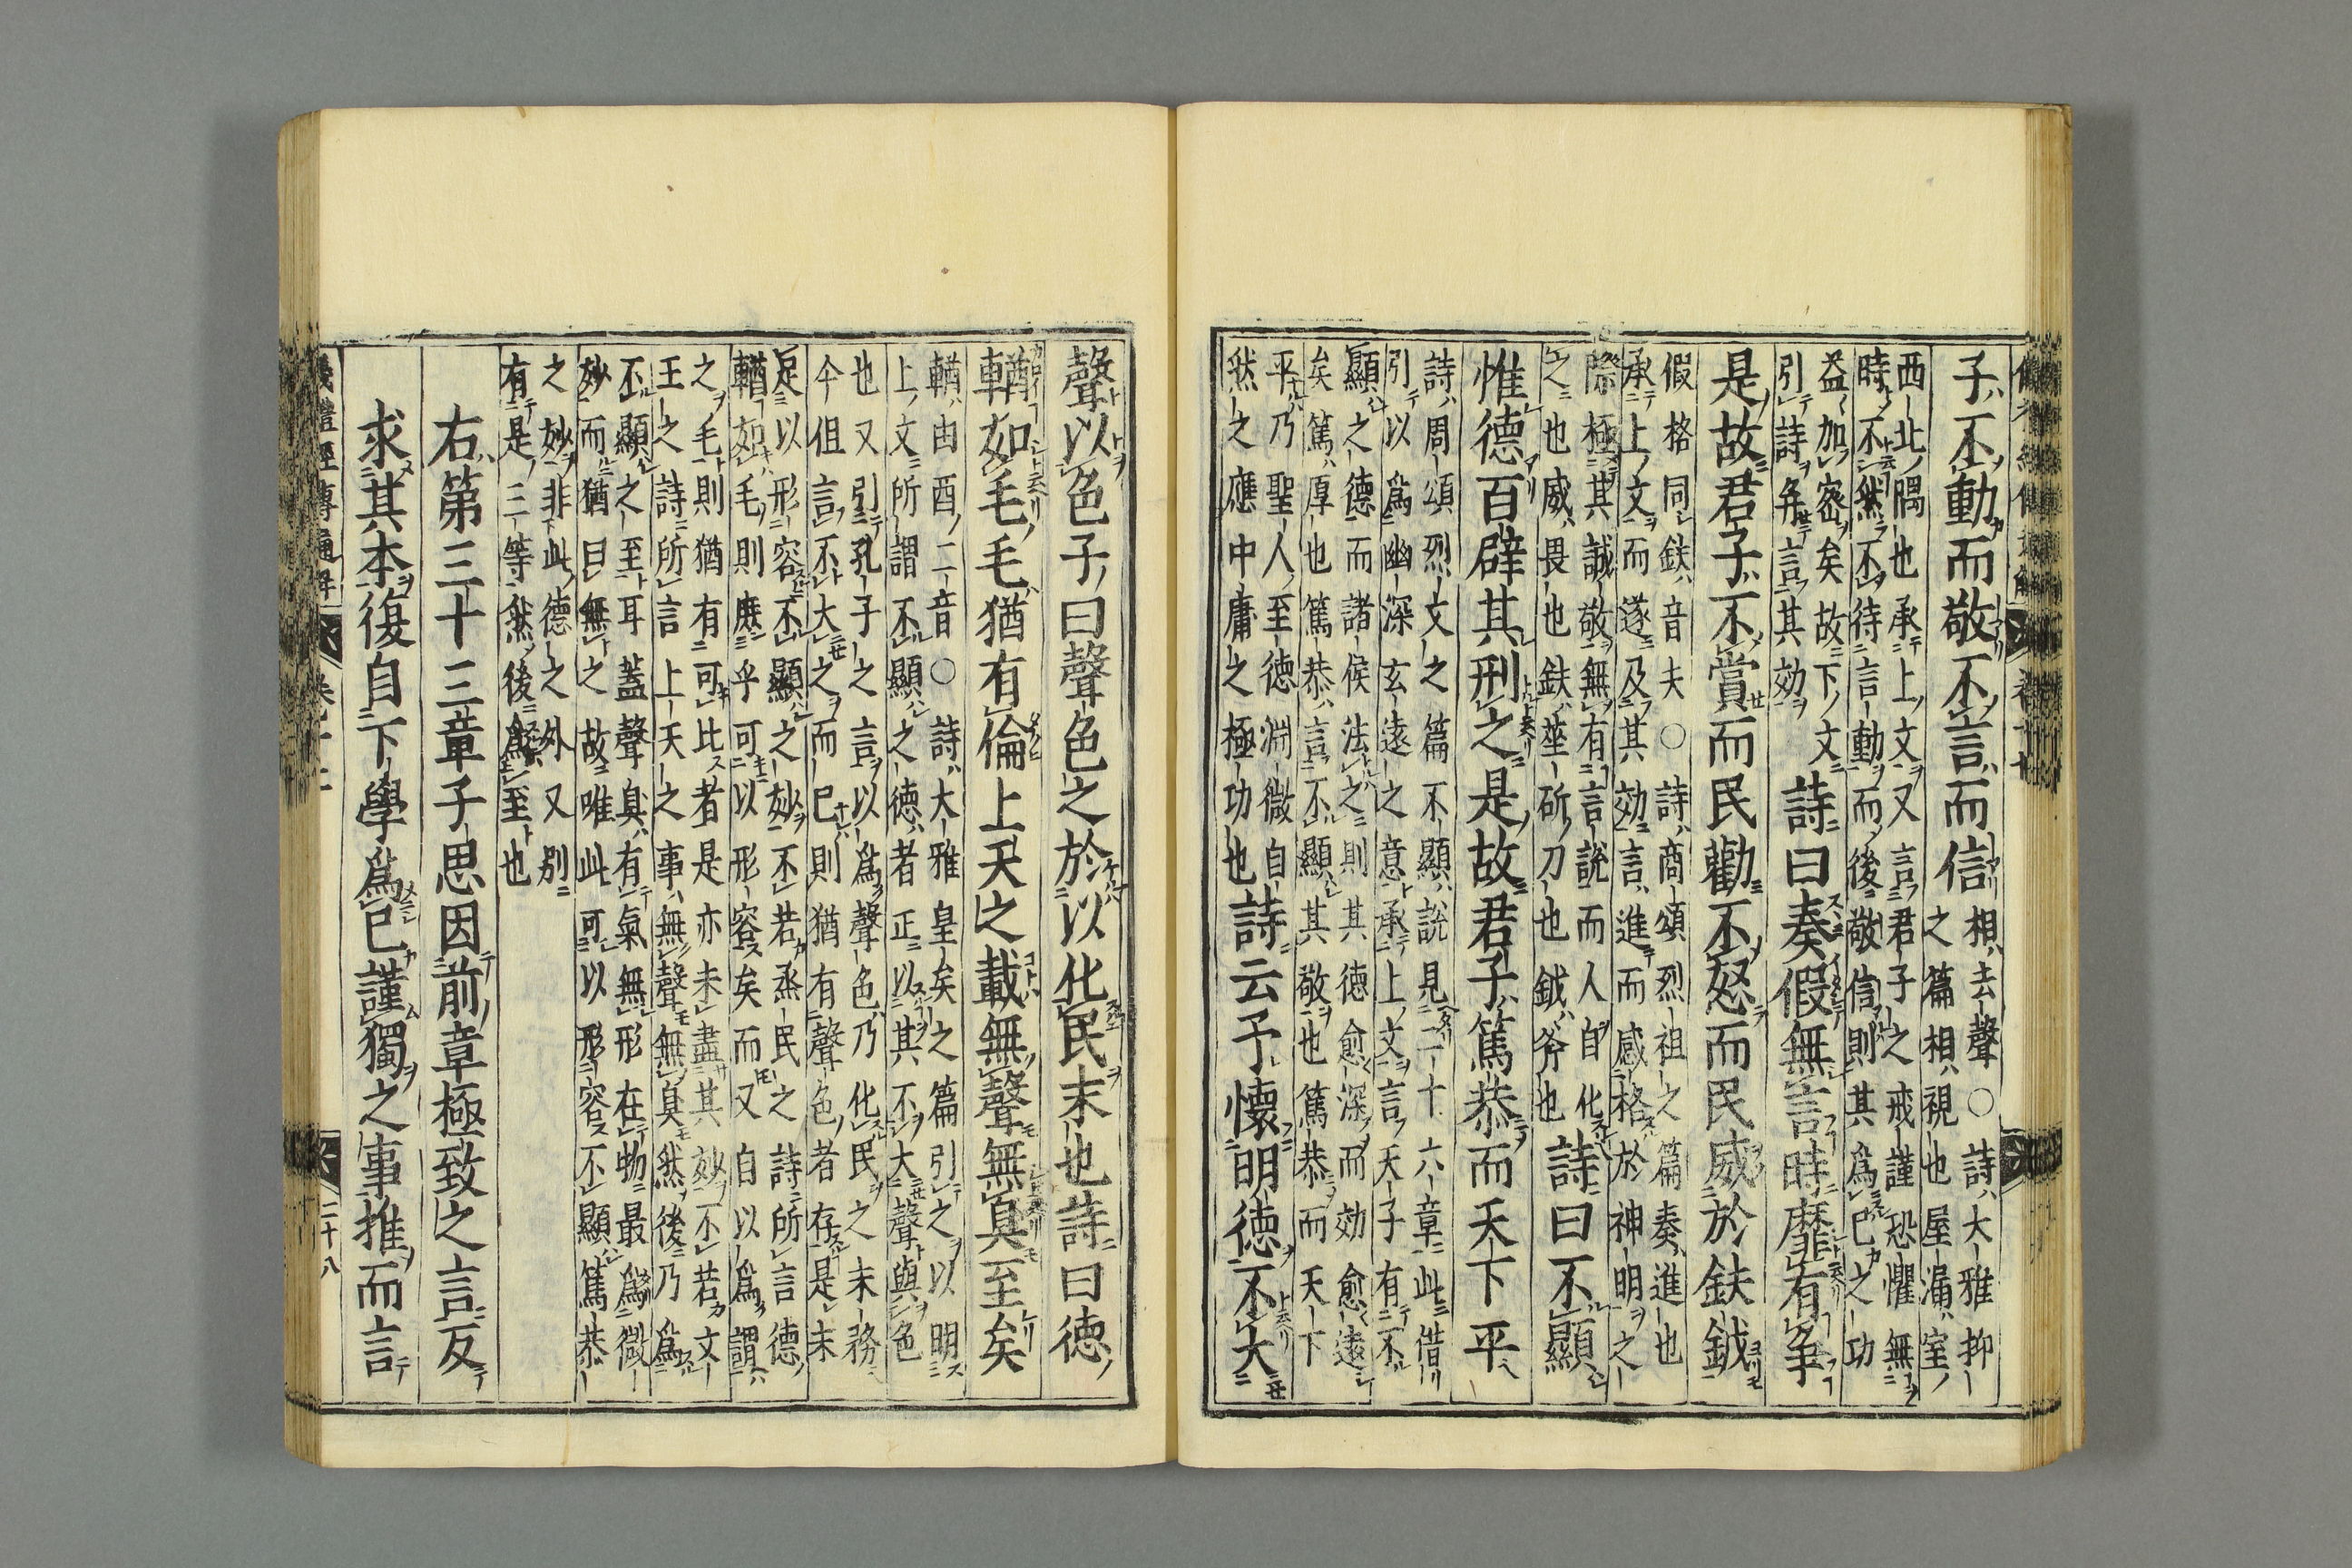 子不動而敬不言而信
相去聲○詩大雅抑
之篇相視也屋漏室
西北隅也承上文又言君子之戒謹恐懼無
時不然不待言動而後敬信則其爲己之功
益加密矣故下文
引詩并言其効
詩曰奏假無言時靡有爭
是故君子不賞而民勸不怒而民威於鈇鉞
假格同鈇音夫○詩商頌烈祖之篇奏進也
承上文而遂及其効言進而感格於神明之
際極其誠敬無有言說而人自化
之也威畏也鈇莝斫刀也鉞斧也
詩曰不顯
惟德百辟其刑之是故君子篤恭而天下平
詩周頌烈文之篇不顯說見二十六章此借
引以爲幽深玄遠之意承上文言天子有不
顯之德而諸侯法之則其德愈深而効愈遠
矣篤厚也篤恭言不顯其敬也篤恭而天下
平乃聖人至德淵微自
然之應中庸之極功也
詩云予懷明德不大
聲以色子曰聲色之於以化民末也詩曰德
輶如毛毛猶有倫上天之載無聲無臭至矣
輶由酉二音○詩大雅皇矣之篇引之以明
上文所謂不顯之德者正以其不大聲與色
也又引孔子之言以爲聲色乃化民之末務
今但言不大之而已則猶有聲色者存是未
足以形容不顯之妙不若烝民之詩所言德
輶如毛則庶乎可以形容矣而又自以爲謂
之毛則猶有可比者是亦未盡其妙不若文
王之詩所言上天之事無聲無臭然後乃爲
不顯之至耳蓋聲臭有氣無形在物最爲微
妙而猶曰無之故唯此可以形容不顯篤恭
之妙非此德之外又別
有是三等然後爲至也
右第三十三章子思因前章極致之言反
求其本復自下學爲己謹獨之事推而言
二十八